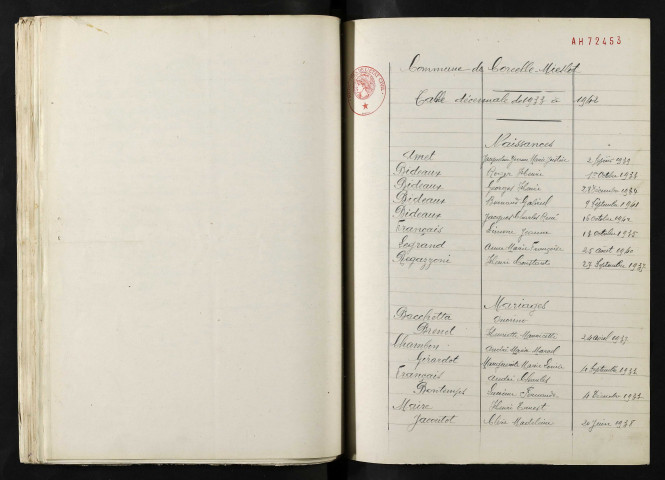 AH 72453
Commune de Corcelle-Mieslot
Table décennale de 1933 à 1942
Naissances
Amet Jacqueline Yvonne Marie 2 1939
Bideaux Roger 1er Octobre 1933
Bideaux Georges 28 Décembre 1936
Bideaux Bernard Gabriel 9 Septembre 1941
Bideaux Jacques Charles René 16 Octobre 1942
Français Simone Jeanne 13 Octobre 1935
Legrand Anne Marie Françoise 25 Août 1940
Regazzoni Henri Constant 23 Septembre 1937
Mariages
Bacchetta
Brenet Henriette 24 avril 1937
Chambon André Marie Marcel
Girardot Marguerite Marie Louise 4 Septembre 1933
Français André Charles
Bontemps Fernande 4 1933
Maire Henri Ernest
Jacoutot Claire Madeleine 20 Juin 1938